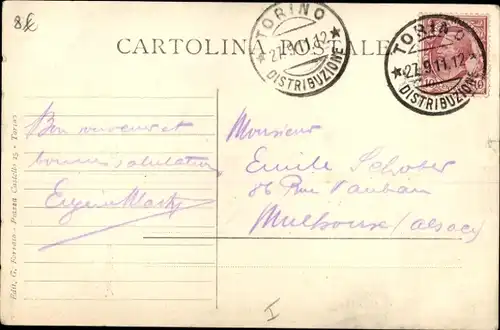 8€
CARTOLINA POSTALE
TORINO
27.9.11.12
DISTRIBUZIONE
TORINO
27.9.11.12
DISTRIBUZIONE
Bon souvenir et
bonnes salutations
Eugène
Monsieur
Emile Schober
86 Rue Vauban
Mulhouse (alsace)
I
Edit. G. Ferraro - Piazza Castello 25 - Torino